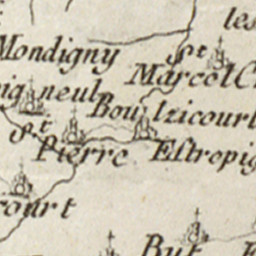 les
Mondigny
St
Marcel
neul
Boulzicourt
St
Pierre
Estrepig
court
But